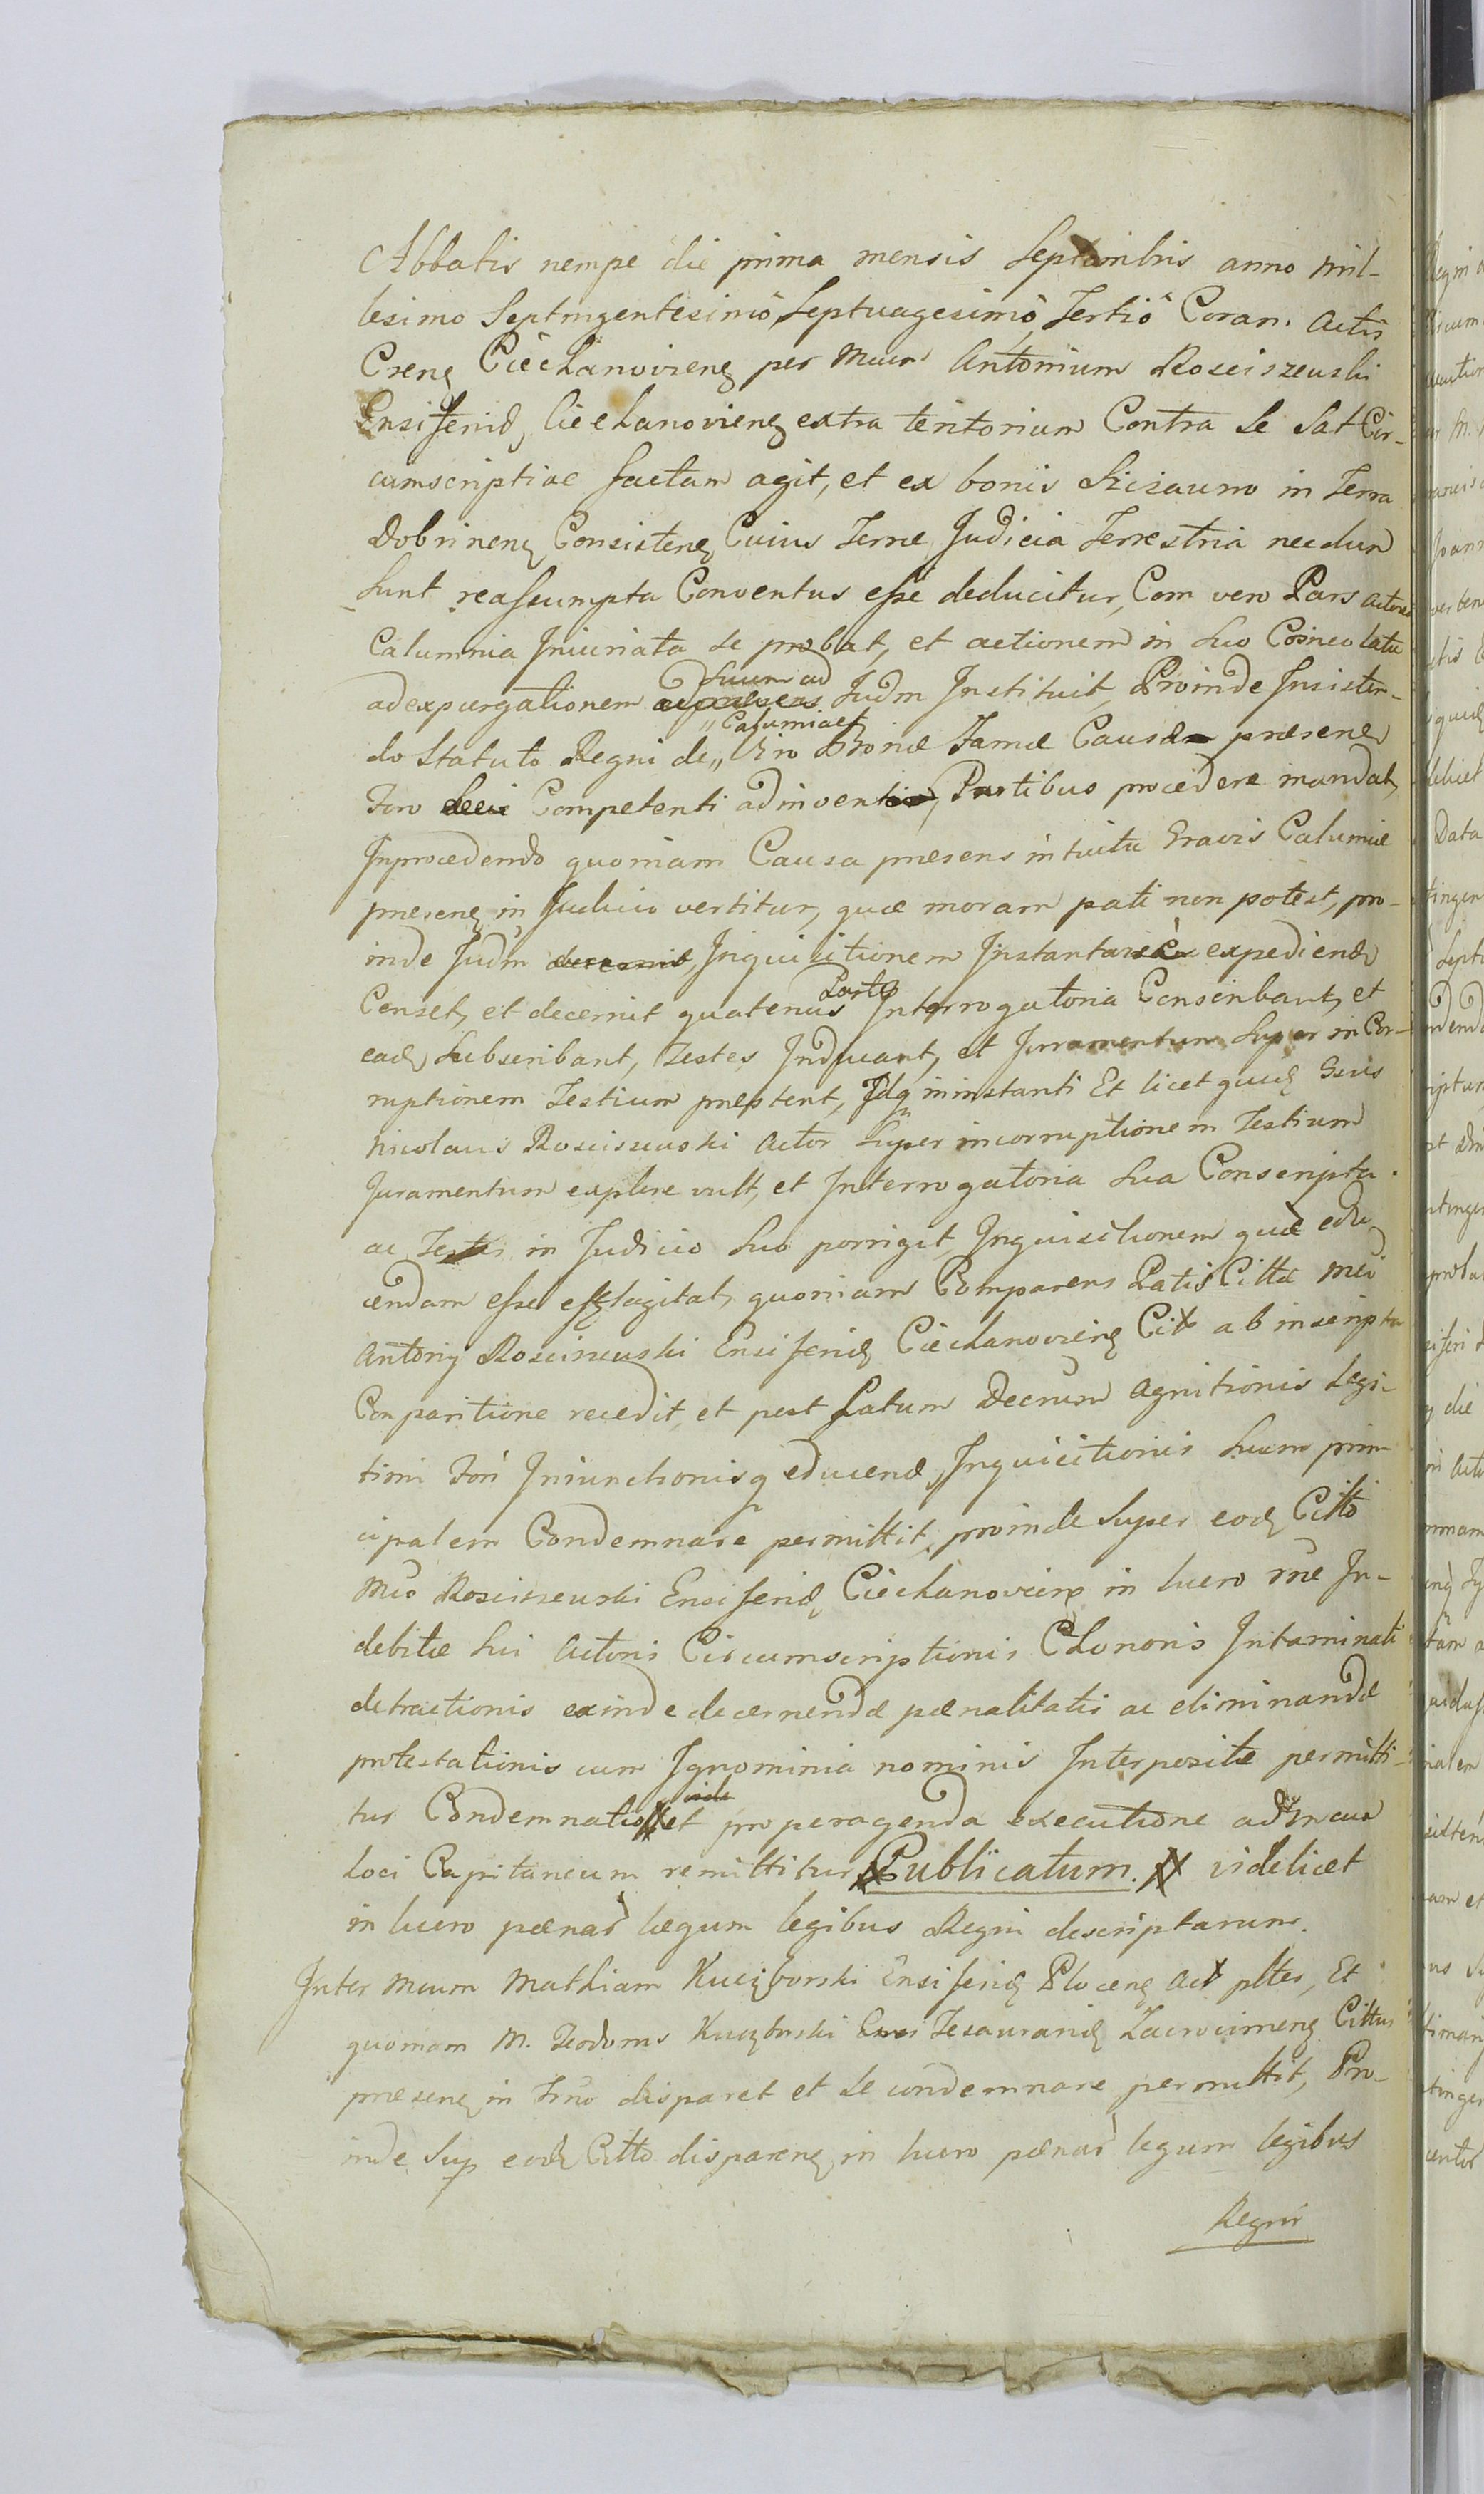 Abbatis nempe die prima mensis Septembris anno mil-
lesimo Septingentesimô Septuagesimô Tertiô Coram actis
Crens Ciechanoviens per Mcum Antonium Rosciszewski
Ensiferid Ciechanoviens extra teritorium Contra Se Sat Cir-
cumscriptiae factam agit, et ex bonis in Terra
Dobrinens Consistens Cuius Terræ Judicia Terrestria necdum
Sunt reassumpta Conventus esse deducitur, Com vero Pars actorea
Calumnia Iniuriata se probat, et actionem in Suo Coineo latu
ad expurgationem Suum ad Judm Instituit, Proinde Insisten-
do Statuto Regni de „ Calumiaet Viro Bonæ Famæ Causæ præsens
Foro Competenti adinvento, Partibus procedere mandat,
Inprocedendo quoniam Causa præsens intuitu Gravis Calumiæ
præsens in Judicio vertitur, quæ moram pati non potest, pro-
inde Judm decernit, Inquisitionem Instantanee expediend
Censet, et decernit quatenus Partes Interrogatoria Conscribant, et
ead Subscribant, Testes Inducant, et Juramentum Super in Cor-
ruptionem Testium præstent, Idq ininstanti Et licet quid Gsus
Nicolaus Rosciszewski Actor Super incorruptionem Testium
Juramentum explere vult, et Interrogatoria Sua Conscripta
ac Testes in Judicio Suo porrigit, Inquisitionem quæ edu-
cendam esse efflagitat, quoniam Comparens Patis Cittæ Mci
Antonij Rosciszewski Ensiferid Ciechanoviens Citt ab inscripta
Comparitione recedit, et post Latum Decrum Agnitionis Legi-
timi Fori Iniunctionisq educendæ Inquisitionis Suum prin-
cipalem Condemnare permittit, proinde Super eod Citto
Mco Rosciszewski Ensiferid Ciechanoviens in lucro rne In-
debitæ Sui Actoris Circumscriptionis Honoris Intaminati
detractionis exinde decernendæ pænalitatis ac eliminandæ
protestationis cum Ignominia nominis Interpositæ permitti-
tur Condemnatio et pro peragenda executione ad
Loci Capitaneum remittitur Publicatum. videlicet
in lucro pænar legum legibus Regni descriptarum.
Inter Mcum Mathiam Kuczborski Ensiferid Plocens Act pltes, Et
quoniam M. Teodorus Kuczborski Tesaurarid Zacrocimens Cittus
præsens in Trno disparet et Se condemnare permittit, Pro-
inde Sup eod Citto disparens in lucro pænar legum legibus
Regni